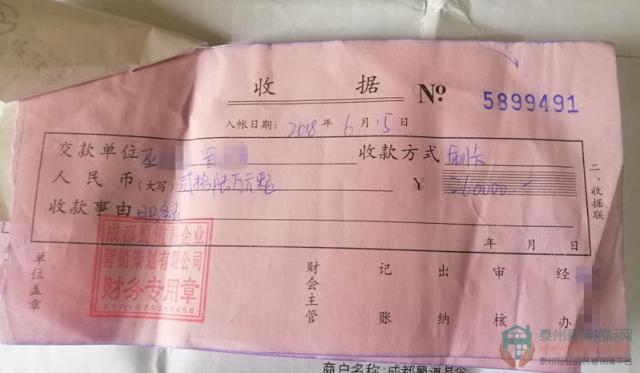 收 据 № 5899491
入帐日期: 2018 年 6 月 15 日
交款单位 收款方式 刷卡
人民币(大写) 贰拾陆万元整 ¥ 260000 -
收款事由
二、收据联
年 月 日
成都蜀道易企业
营销策划有限公司
财务专用章
单位盖章 财会主管 记账 出纳 审核 经办
泰州装饰招标网
商户名称:成都蜀道易企